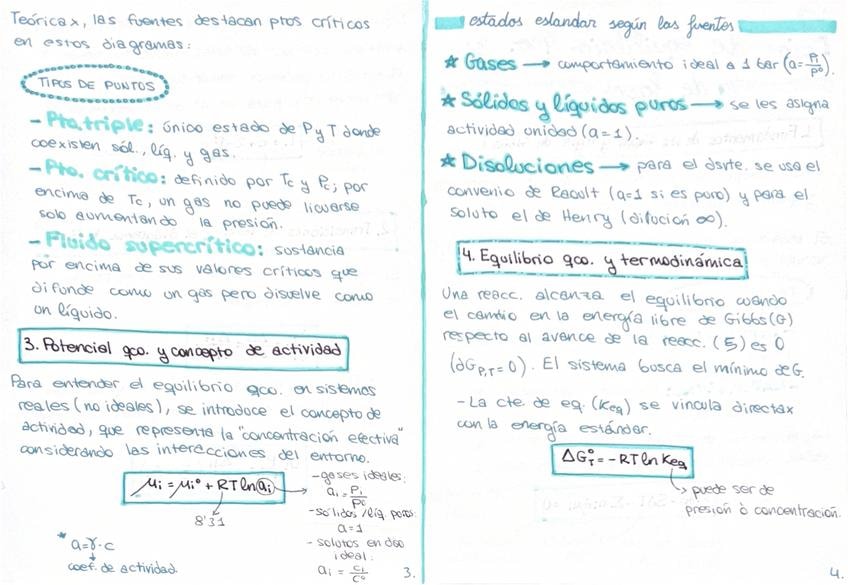 Teóricax, las fuentes destacan ptos críticos
en estos diagramas:
TIPOS DE PUNTOS
- Pto. triple: único estado de P y T donde
coexisten sól., líq. y gas.
- Pto. crítico: definido por Tc y Pc; por
encima de Tc, un gas no puede licuarse
solo aumentando la presión.
- Fluido supercrítico: sustancia
por encima de sus valores críticos que
difunde como un gas pero disuelve como
un líquido.
3. Potencial qco. y concepto de actividad
Para entender el equilibrio qco. en sistemas
reales (no ideales), se introduce el concepto de
actividad, que representa la "concentración efectiva"
considerando las interacciones del entorno.
μi = μi° + RT ln ai
8'31
- gases ideales:
ai = Pi/P°
- sólidos/líq. puros:
a=1
- solutos en dso
ideal:
ai = ci/c°
* a=γ·c
coef. de actividad.
3.
estados estandar según las fuentes
★ Gases → comportamiento ideal a 1 bar (a=Pi/P°).
★ Sólidos y líquidos puros → se les asigna
actividad unidad (a=1).
★ Disoluciones → para el dsvte. se usa el
convenio de Raoult (a=1 si es puro) y para el
soluto el de Henry (dilución ∞).
4. Equilibrio qco. y termodinámica
Una reacc. alcanza el equilibrio cuando
el cambio en la energía libre de Gibbs (G)
respecto al avance de la reacc. (ξ) es 0
(∂G P,T = 0). El sistema busca el mínimo de G.
- La cte. de eq. (Keq) se vincula directax
con la energía estándar.
ΔG°T = -RT ln Keq
puede ser de
presión ó concentración.
4.